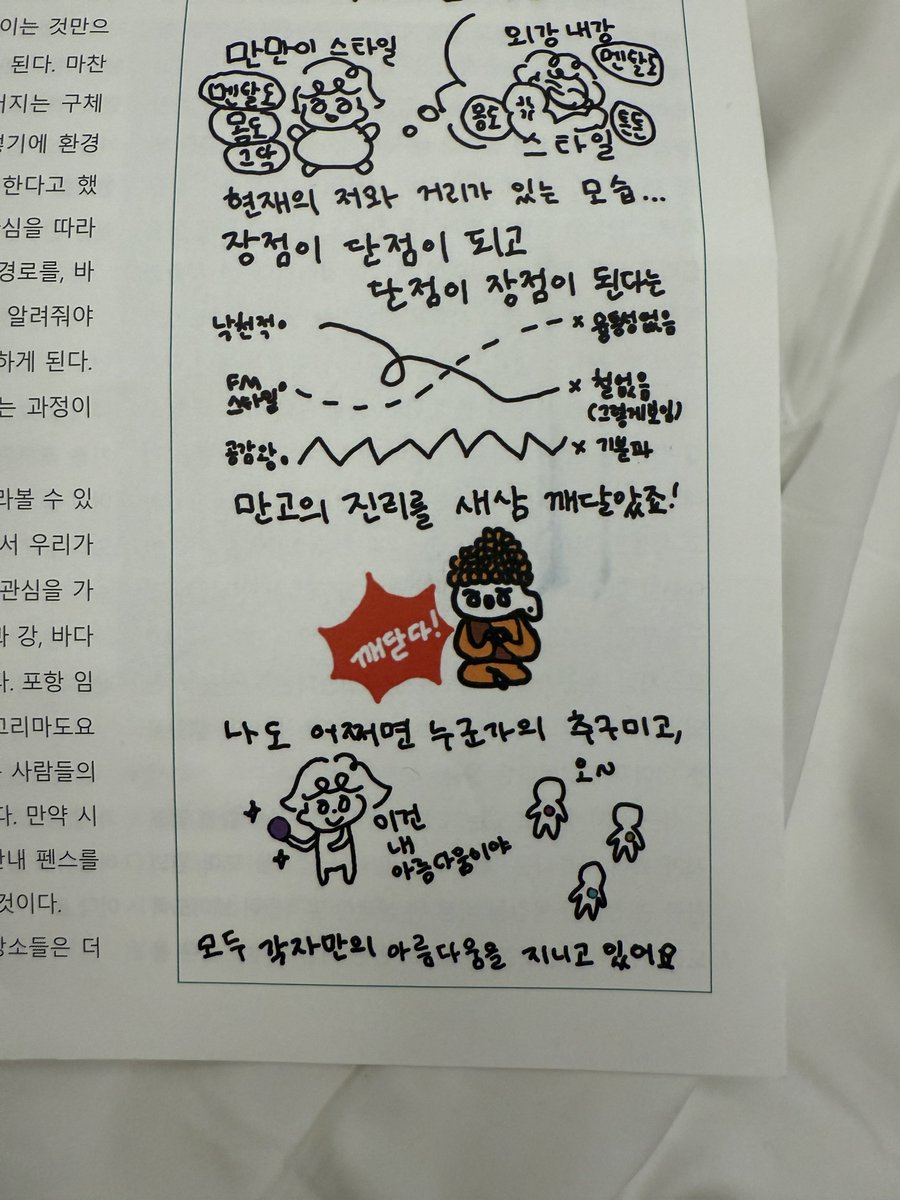 이는 것만으
된다. 마찬
어지는 구체
렇기에 환경
한다고 했
심을 따라
경로를, 바
알려줘야
하게 된다.
는 과정이
라볼 수 있
서 우리가
관심을 가
과 강, 바다
다. 포항 임
고리마도요
사람들의
다. 만약 시
안내 펜스를
것이다.
장소들은 더
만만이 스타일
멘탈도
몸도
그닥
외강내강
멘탈도
몸도
튼튼
스타일
현재의 저와 거리가 있는 모습...
장점이 단점이 되고
단점이 장점이 된다는
낙천적
융통성없음
FM
스타일
철없음
(그렇게보임)
공감왕
기분파
만고의 진리를 새삼 깨달았죠!
깨달다!
나도 어쩌면 누군가의 추구미고,
오~
이건
내
아름다움이야
모두 각자만의 아름다움을 지니고 있어요